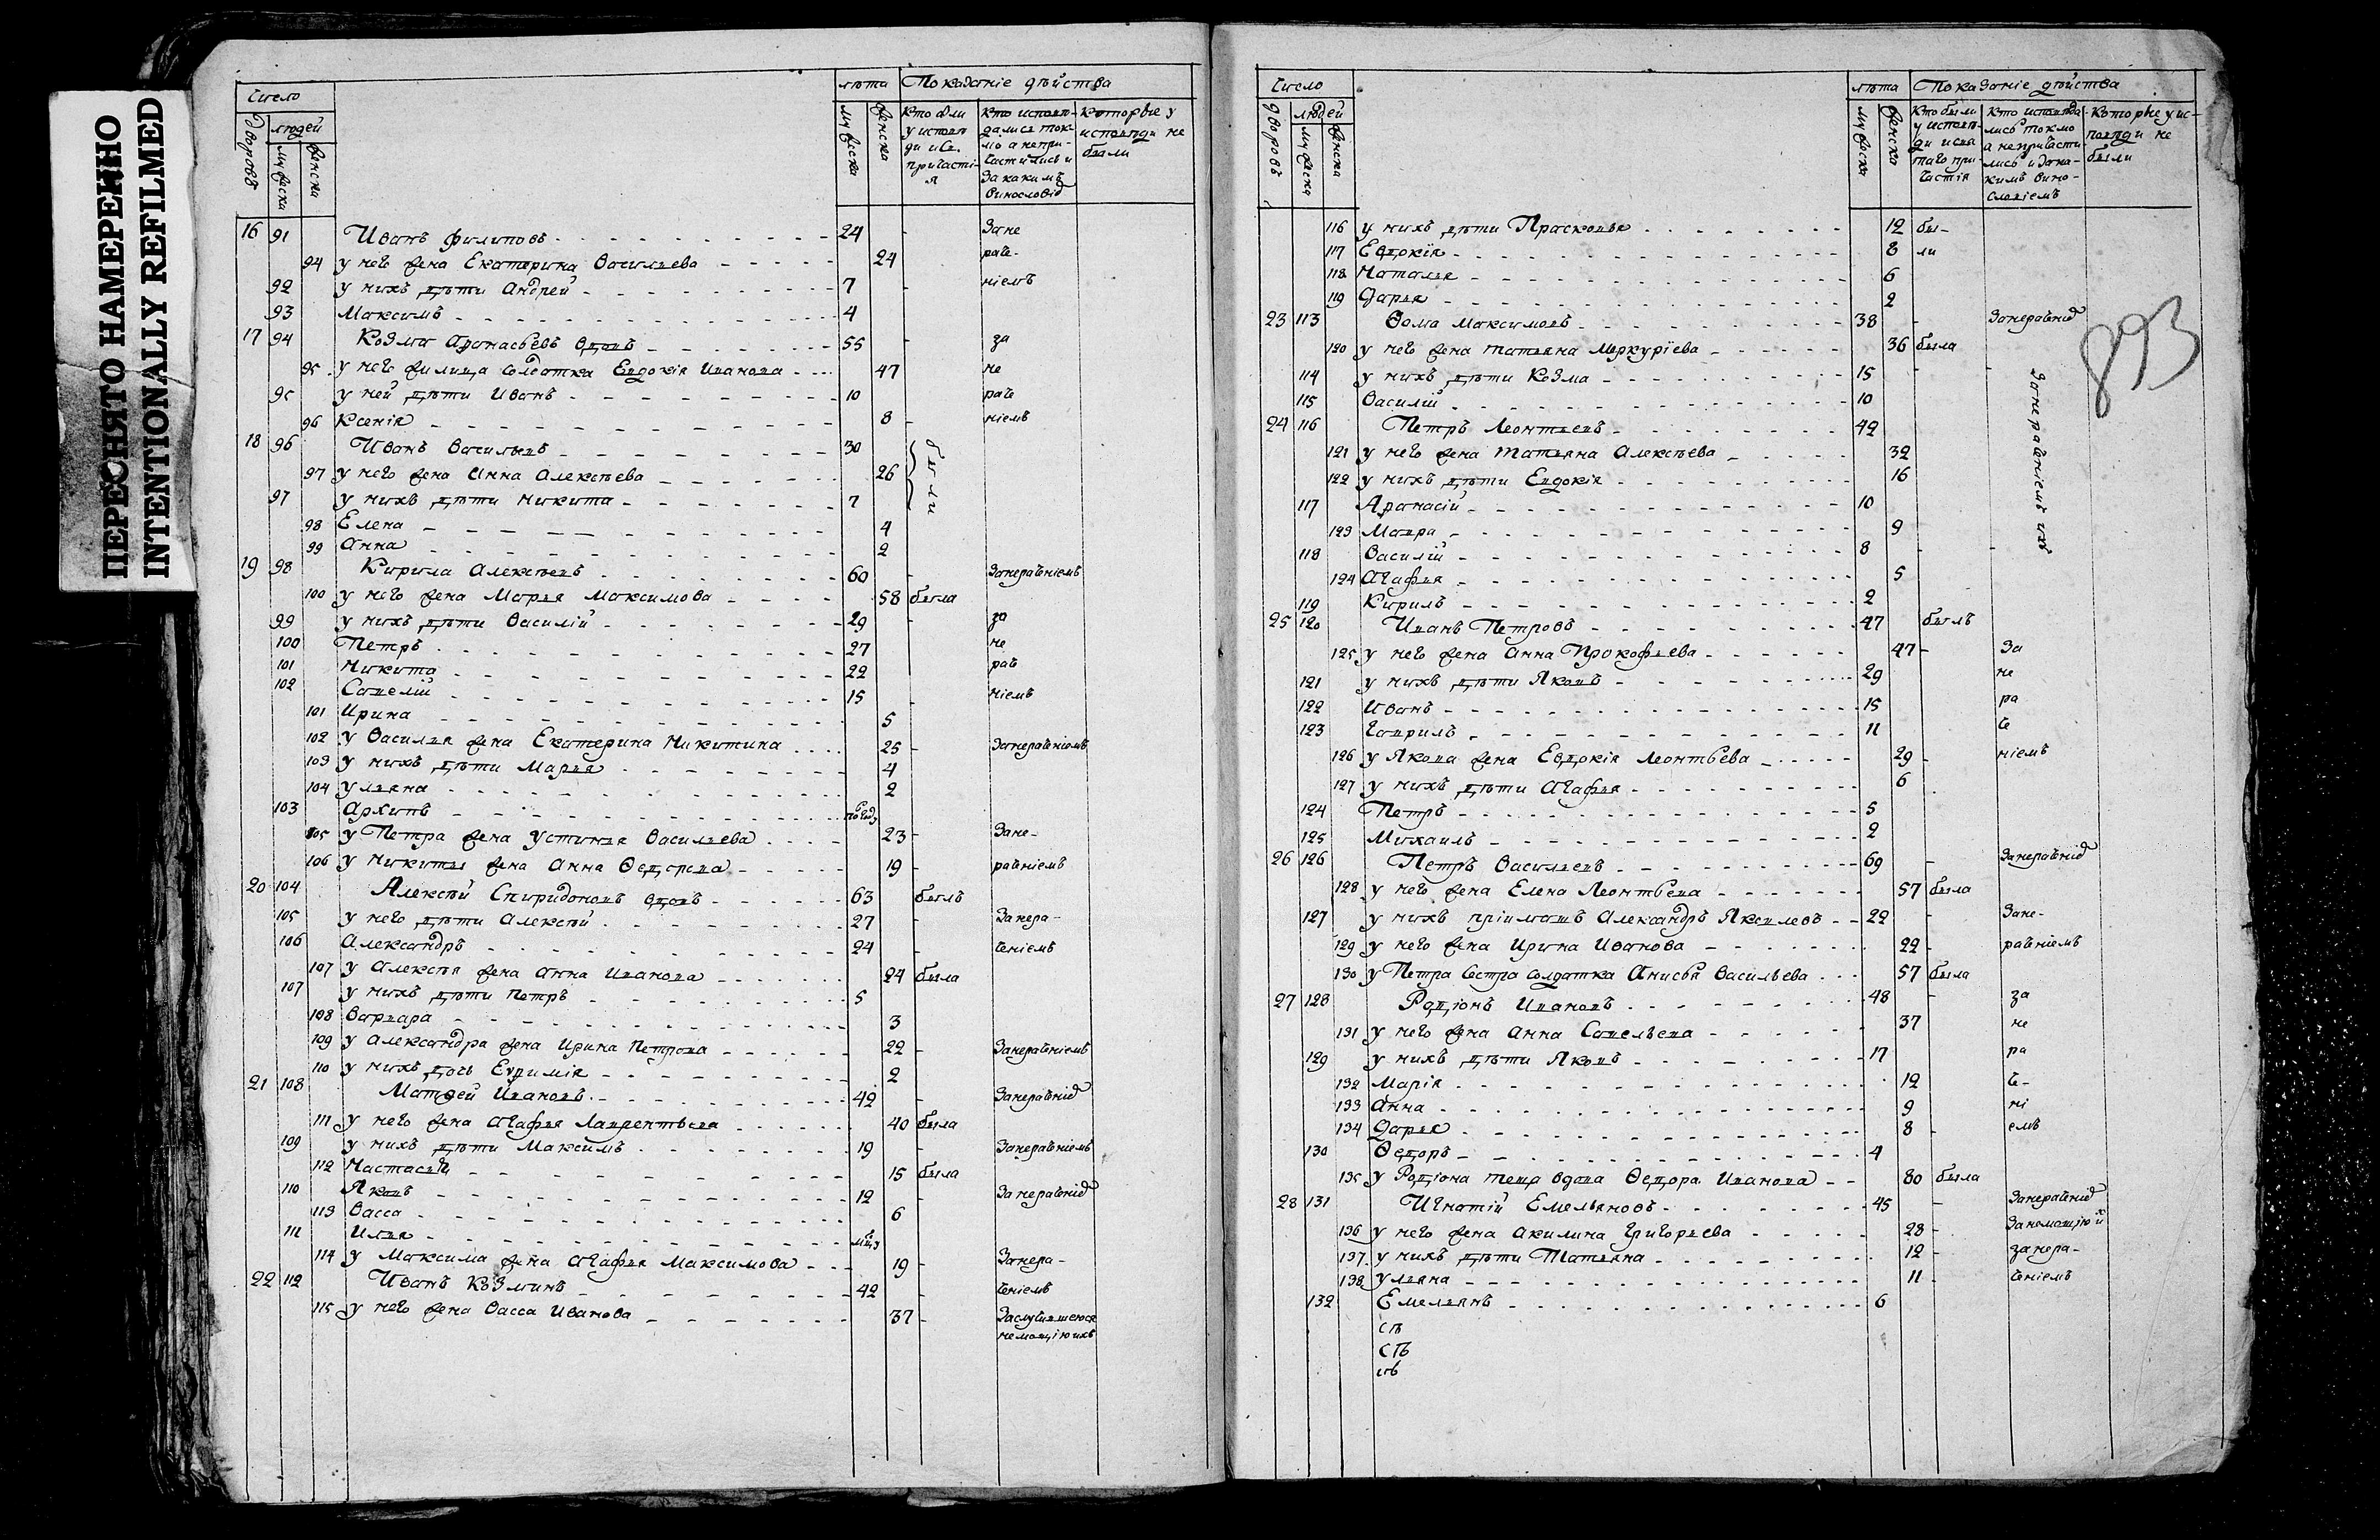 ПЕРЕСНЯТО НАМЕРЕННО
INTENTIONALLY REFILMED
Число
лѣта Показаніе дѣйства
дворовъ людей мужеска женска
мужеска женска
кто были у исповѣди и св. причастія
кто исповѣдались токмо а не причастились и за какимъ винословіе
которые у исповѣди не были
16 91 Иванъ Филиповъ 24 - Зане
94 у него жена Екатерина Васильева 24 раче-
92 у нихъ дѣти Андрей 7 - ніемъ
93 Максимъ 4
17 94 Козма Афонасьевъ вдовъ 55 - за
95 у него жилица солдатка Евдокія Иванова 47 не
95 у ней дѣти Иванъ 10 раче
96 Ксенія 8 - ніемъ
18 96 Иванъ Васильевъ 30 были
97 у него жена Анна Алексѣева 26
97 у нихъ дѣти Никита 7
98 Елена 4
99 Анна 2
19 98 Кирила Алексѣевъ 60 - Занераченіемъ
100 у него жена Марья Максимова 58 была
99 у нихъ дѣти Василій 29 - за
100 Петръ 27 не
101 Никита 22 рач
102 Савелій 15 - ніемъ
101 Ирина 5
102 у Василья жена Екатерина Никитина 25 - Занераченіемъ
103 у нихъ дѣти Марья 4
104 Ульяна 2
103 Архипъ по году
105 у Петра жена Устинья Васильева 23 - Зане-
106 у Никиты жена Анна Ѳедорова 19 - раченіемъ
20 104 Алексѣй Спиридоновъ вдовъ 63 былъ
105 у него дѣти Алексѣй 27 - Занера-
106 Александръ 24 - ченіемъ
107 у Алексѣя жена Анна Иванова 24 была
107 у нихъ дѣти Петръ 5
108 Варвара 3
109 у Александра жена Ирина Петрова 22 - Занераченіемъ
110 у нихъ дочь Евфимія 2
21 108 Матфей Ивановъ 42 - Занераченіе
111 у него жена Агафья Лаврентьева 40 была
109 у нихъ дѣти Максимъ 19 - Занераченіемъ
112 Настасья 15 была
110 Яковъ 12 - Занераченіе
113 Васса 6
111 Илья
114 у Максима жена Агафья Максимова 19 - Занера-
22 112 Иванъ Козминъ 42 - ченіемъ
115 у него жена Васса Иванова 37 - Заслучившеюся
немощію ихъ
Число
лѣта Показаніе дѣйства
дворовъ людей мужеска женска
мужеска женска
кто были у исповѣди и святаго причастія
кто исповѣдались токмо а не причастились и за какимъ винословіемъ
которые у исповѣди не были
893
116 у нихъ дѣти Прасковья 12 бы-
117 Евдокія 8 ли
118 Наталья 6
119 Дарья 2
23 113 Ѳома Максимовъ 38 - Занераченіе
120 у него жена Татьяна Меркуріева 36 была
114 у нихъ дѣти Козма 15 - - Занераченіемъ ихъ
115 Василій 10
24 116 Петръ Леонтьевъ 42
121 у него жена Татьяна Алексѣева 32
122 у нихъ дѣти Евдокія 16
117 Афанасій 10
123 Мавра 9
118 Василій 8 - -
124 Агафья 5
119 Кирилъ 2
25 120 Иванъ Петровъ 47 былъ
125 у него жена Анна Прокофьева 47 - За
121 у нихъ дѣти Яковъ 29 не
122 Иванъ 15 ра
123 Гаврилъ 11 че
126 у Якова жена Евдокія Леонтьева 29 - ніемъ
127 у нихъ дѣти Агафья 6
124 Петръ 5
125 Михаилъ 2
26 126 Петръ Васильевъ 69 - Занераченіе
128 у него жена Елена Леонтьева 57 была
127 у нихъ пріимышъ Александръ Яковлевъ 22 - Зане-
129 у него жена Ирина Иванова 22 - раченіемъ
130 у Петра сестра солдатка Анисья Васильева 57 была
27 128 Родіонъ Ивановъ 48 - за
131 у него жена Анна Савельева 37 не
129 у нихъ дѣти Яковъ 17 ра
132 Марія 12 че-
133 Анна 9 ні
134 Дарья 8 - емъ
130 Ѳедоръ 4
135 у Родіона теща вдова Ѳедора Иванова 80 была
28 131 Игнатій Емельяновъ 45 - Занераченіе
136 у него жена Акилина Григорьева 28 - Занемощію
137 у нихъ дѣти Татьяна 12 - занера-
138 Ульяна 11 - ченіемъ
132 Емельянъ 6